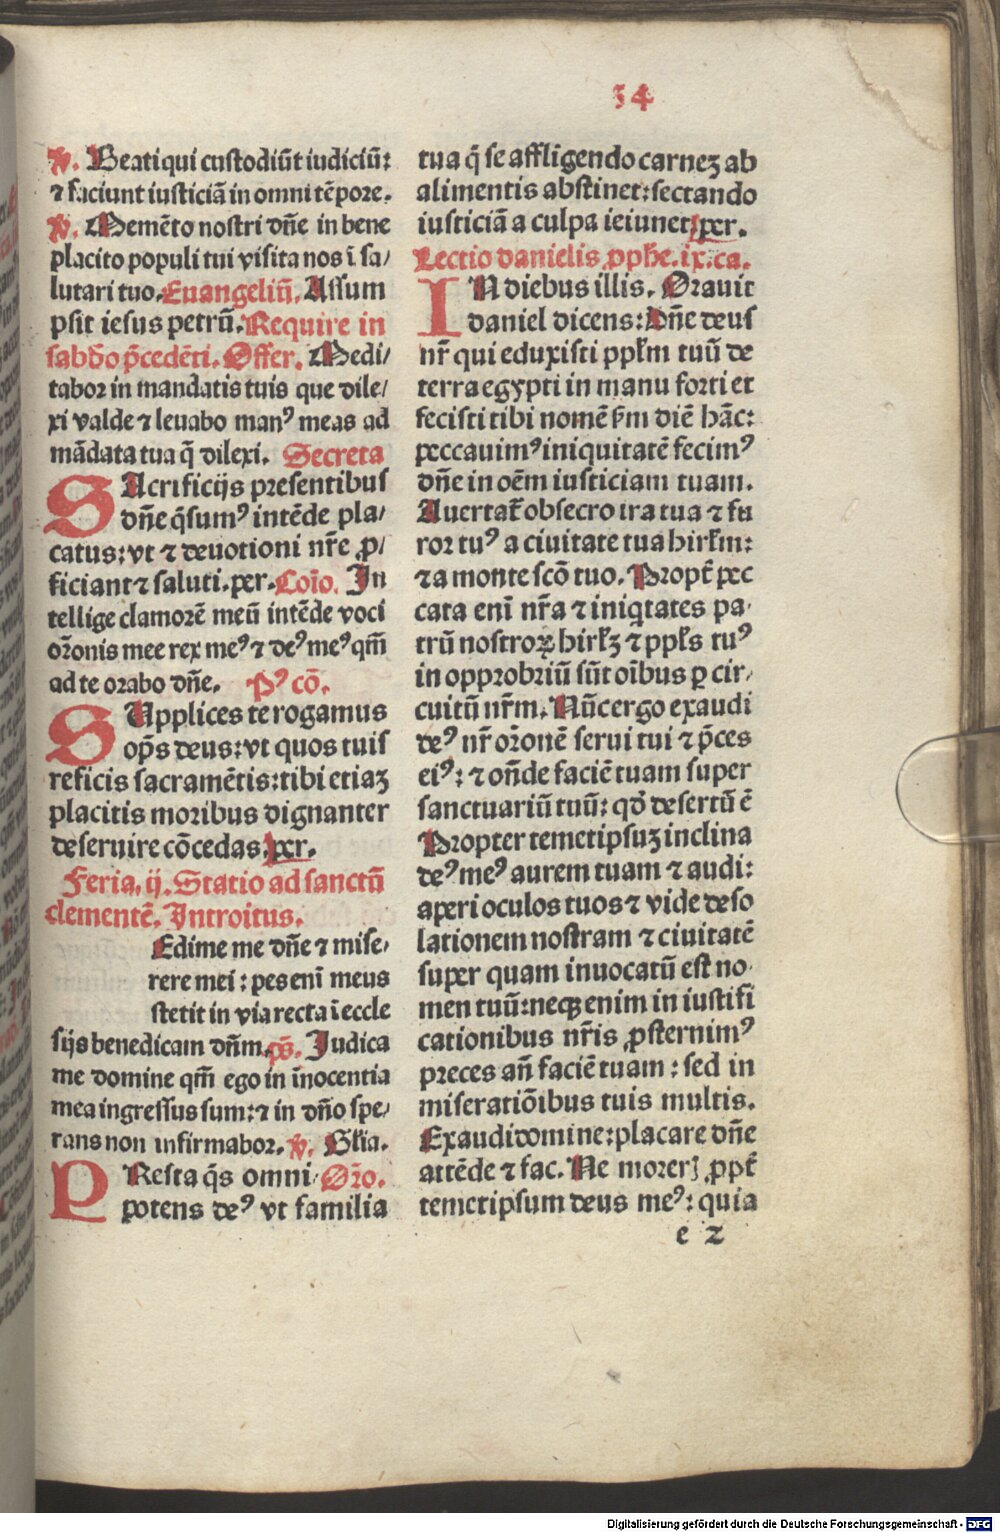 34
℣. Beati qui custodiūt iudiciū:
⁊ faciunt iusticiā in omni tēpore.
℣. Memēto nostri dn̄e in bene
placito populi tui visita nos ī sa/
lutari tuo. Euangeliū. Assum
psit iesus petrū. Require in
sabb̄o p̄cedēti. Offer. Medi/
tabor in mandatis tuis que dile/
xi valde ⁊ leuabo manꝰ meas ad
mādata tua q̄ dilexi. Secreta
SAcrificijs presentibus
dn̄e q̄sumꝰ intēde pla/
catus: vt ⁊ deuotioni nr̄e ꝓ/
ficiant ⁊ saluti. per. Coīo. In
tellige clamorē meū intēde voci
or̄onis mee rex meꝰ ⁊ deꝰ meꝰ qm̄
ad te orabo dn̄e. Pꝰ cō.
SUpplices te rogamus
op̄s deus: vt quos tuis
reficis sacramētis: tibi etiaz
placitis moribus dignanter
deseruire cōcedas. per.
Feria. ij. Statio ad sanctū
clementē. Introitus.
Edime me dn̄e ⁊ mise/
rere mei: pes enī meus
stetit in via recta ī eccle
sijs benedicam dn̄m. ps̄. Iudica
me domine qm̄ ego in īnocentia
mea ingressus sum: ⁊ in dn̄o spe/
rans non infirmabor. ℣. Gl̄ia.
PResta q̄s omni/ Or̄o.
potens deꝰ vt familia
tua q̄ se affligendo carnez ab
alimentis abstinet: sectando
iusticiā a culpa ieiunet. per.
Lectio danielis ꝓphe. ix. ca.
IN diebus illis. Orauit
daniel dicens: Dn̄e deus
nr̄ qui eduxisti ppl̄m tuū de
terra egypti in manu forti et
fecisti tibi nomē s̄m diē hāc:
peccauimꝰ iniquitatē fecimꝰ
dn̄e in oēm iusticiam tuam.
Auertat̄ obsecro ira tua ⁊ fu
ror tuꝰ a ciuitate tua hirl̄m:
⁊ a monte scō tuo. Propt̄ pec
cata enī nr̄a ⁊ iniq̄tates pa/
trū nostroꝝ hirl̄z ⁊ ppl̄s tuꝰ
in opprobriū sūt oībus ꝑ cir/
cuitū nr̄m. Nūc ergo exaudi
deꝰ nr̄ or̄onē serui tui ⁊ p̄ces
eiꝰ: ⁊ on̄de faciē tuam super
sanctuariū tuū: qd̄ desertū ē
Propter temetipsuz inclina
deꝰ meꝰ aurem tuam ⁊ audi:
aperi oculos tuos ⁊ vide deso
lationem nostram ⁊ ciuitatē
super quam inuocatū est no/
men tuū: neqꝫ enim in iustifi
cationibus nr̄is ꝓsternimꝰ
preces an̄ faciē tuam: sed in
miseratiōibus tuis multis.
Exaudi domine: placare dn̄e
attēde ⁊ fac. Ne moreris ꝓpt̄
temetipsum deus meꝰ: quia
e 2
Digitalisierung gefördert durch die Deutsche Forschungsgemeinschaft - DFG